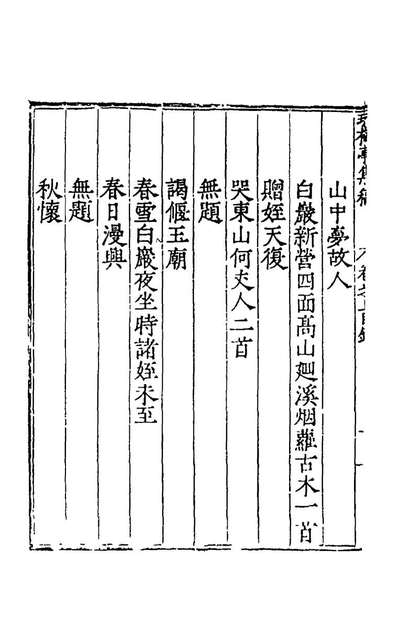 山中夢故人
白巖新營四面髙山廻溪烟蘿古木一首
贈姪天復
哭東山何夫人二首
無題
謁偃王廟
春雪白巖夜坐時諸姪未至
春日漫興
無題
秋懷